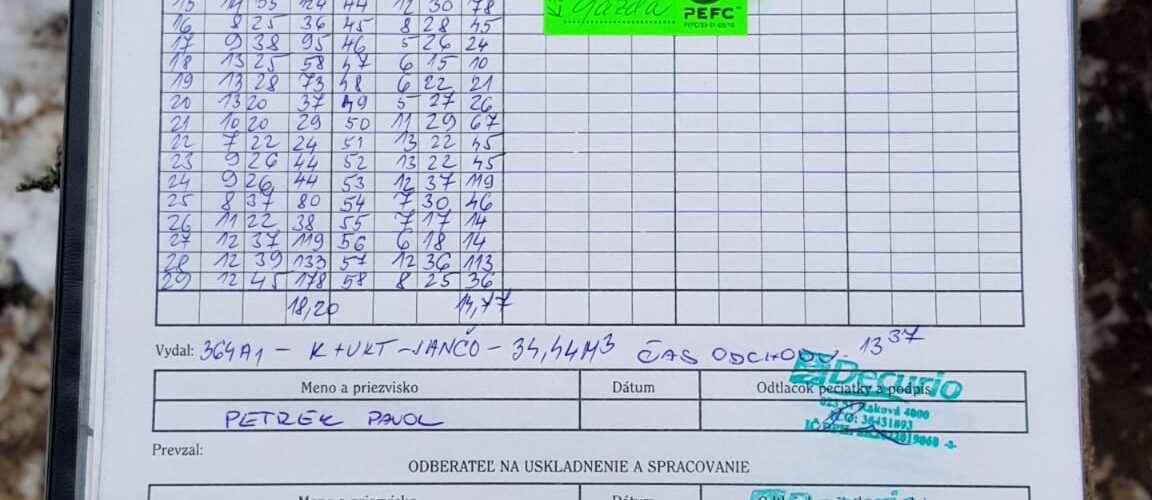 15 14 35 124 44 12 30 78
16 8 25 36 45 8 28 45
17 9 38 95 46 5 26 24
18 13 25 58 47 6 15 10
19 13 28 73 48 6 22 21
20 13 20 37 49 5 27 26
21 10 20 29 50 11 29 67
22 7 22 24 51 13 22 45
23 9 26 44 52 13 22 45
24 9 26 44 53 12 37 119
25 8 37 80 54 7 30 46
26 11 22 38 55 7 17 14
27 12 37 119 56 6 18 14
28 12 39 133 57 12 36 113
29 12 45 178 58 8 25 36
18,20 14,77
Gazda
PEFC™
Vydal: 364A1 - K+UKT-JANČO - 34,44M3 ČAS ODCHODU. 13 37
Meno a priezvisko Dátum Odtlačok pečiatky a podpis
Decurio
PETREK PAVOL
023 51 Raková 4000
IČO: 36431893
Prevzal:
ODBERATEĽ NA USKLADNENIE A SPRACOVANIE
Meno a priezvisko Dátum